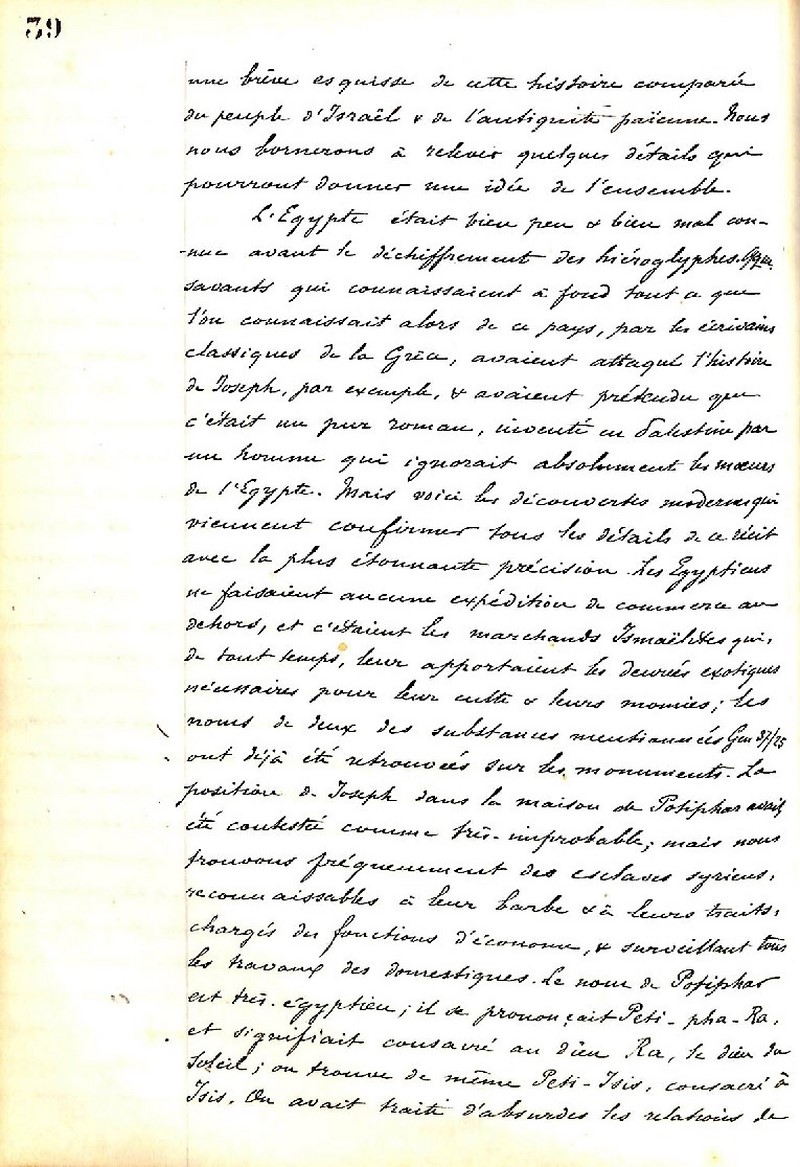 39
une brève esquisse de cette histoire comparée
du peuple d'Israël & de l'antiquité païenne. Nous
nous bornerons à relever quelques détails qui
pourront donner une idée de l'ensemble.
L'Egypte était bien peu & bien mal con-
-nue avant le déchiffrement des hiéroglyphes.
savants qui connaissaient à fond tout ce que
l'on connaissait alors de ce pays, par les écrivains
classiques de la Grèce, avaient attaqué l'histoire
de Joseph, par exemple, & avaient prétendu que
c'était un pur roman, inventé en Palestine par
un homme qui ignorait absolument les mœurs
de l'Egypte. Mais voici les découvertes modernes qui
viennent confirmer tous les détails de ce récit
avec la plus étonnante précision. Les Egyptiens
ne faisaient aucune expédition de commerce au
dehors, et c'étaient les marchands Ismaëlites qui,
de tout temps, leur apportaient les denrées exotiques
nécessaires pour leur culte & leurs momies; les
noms de deux des substances mentionnées Gen 37/25
ont déjà été retrouvées sur les monuments. La
position de Joseph dans la maison de Potiphar avait
été contestée comme très-improbable; mais nous
trouvons fréquemment des esclaves syriens,
reconnaissables à leur barbe & à leurs traits,
chargés des fonctions d'économe, & surveillant tous
les travaux des domestiques. Le nom de Potiphar
est très-égyptien; il se prononçait Peti-pha-Ra,
et signifiait consacré au dieu Ra, le dieu du
Soleil; on trouve de même Peti-Isis, consacré à
Isis. On avait traité d'absurdes les relations de